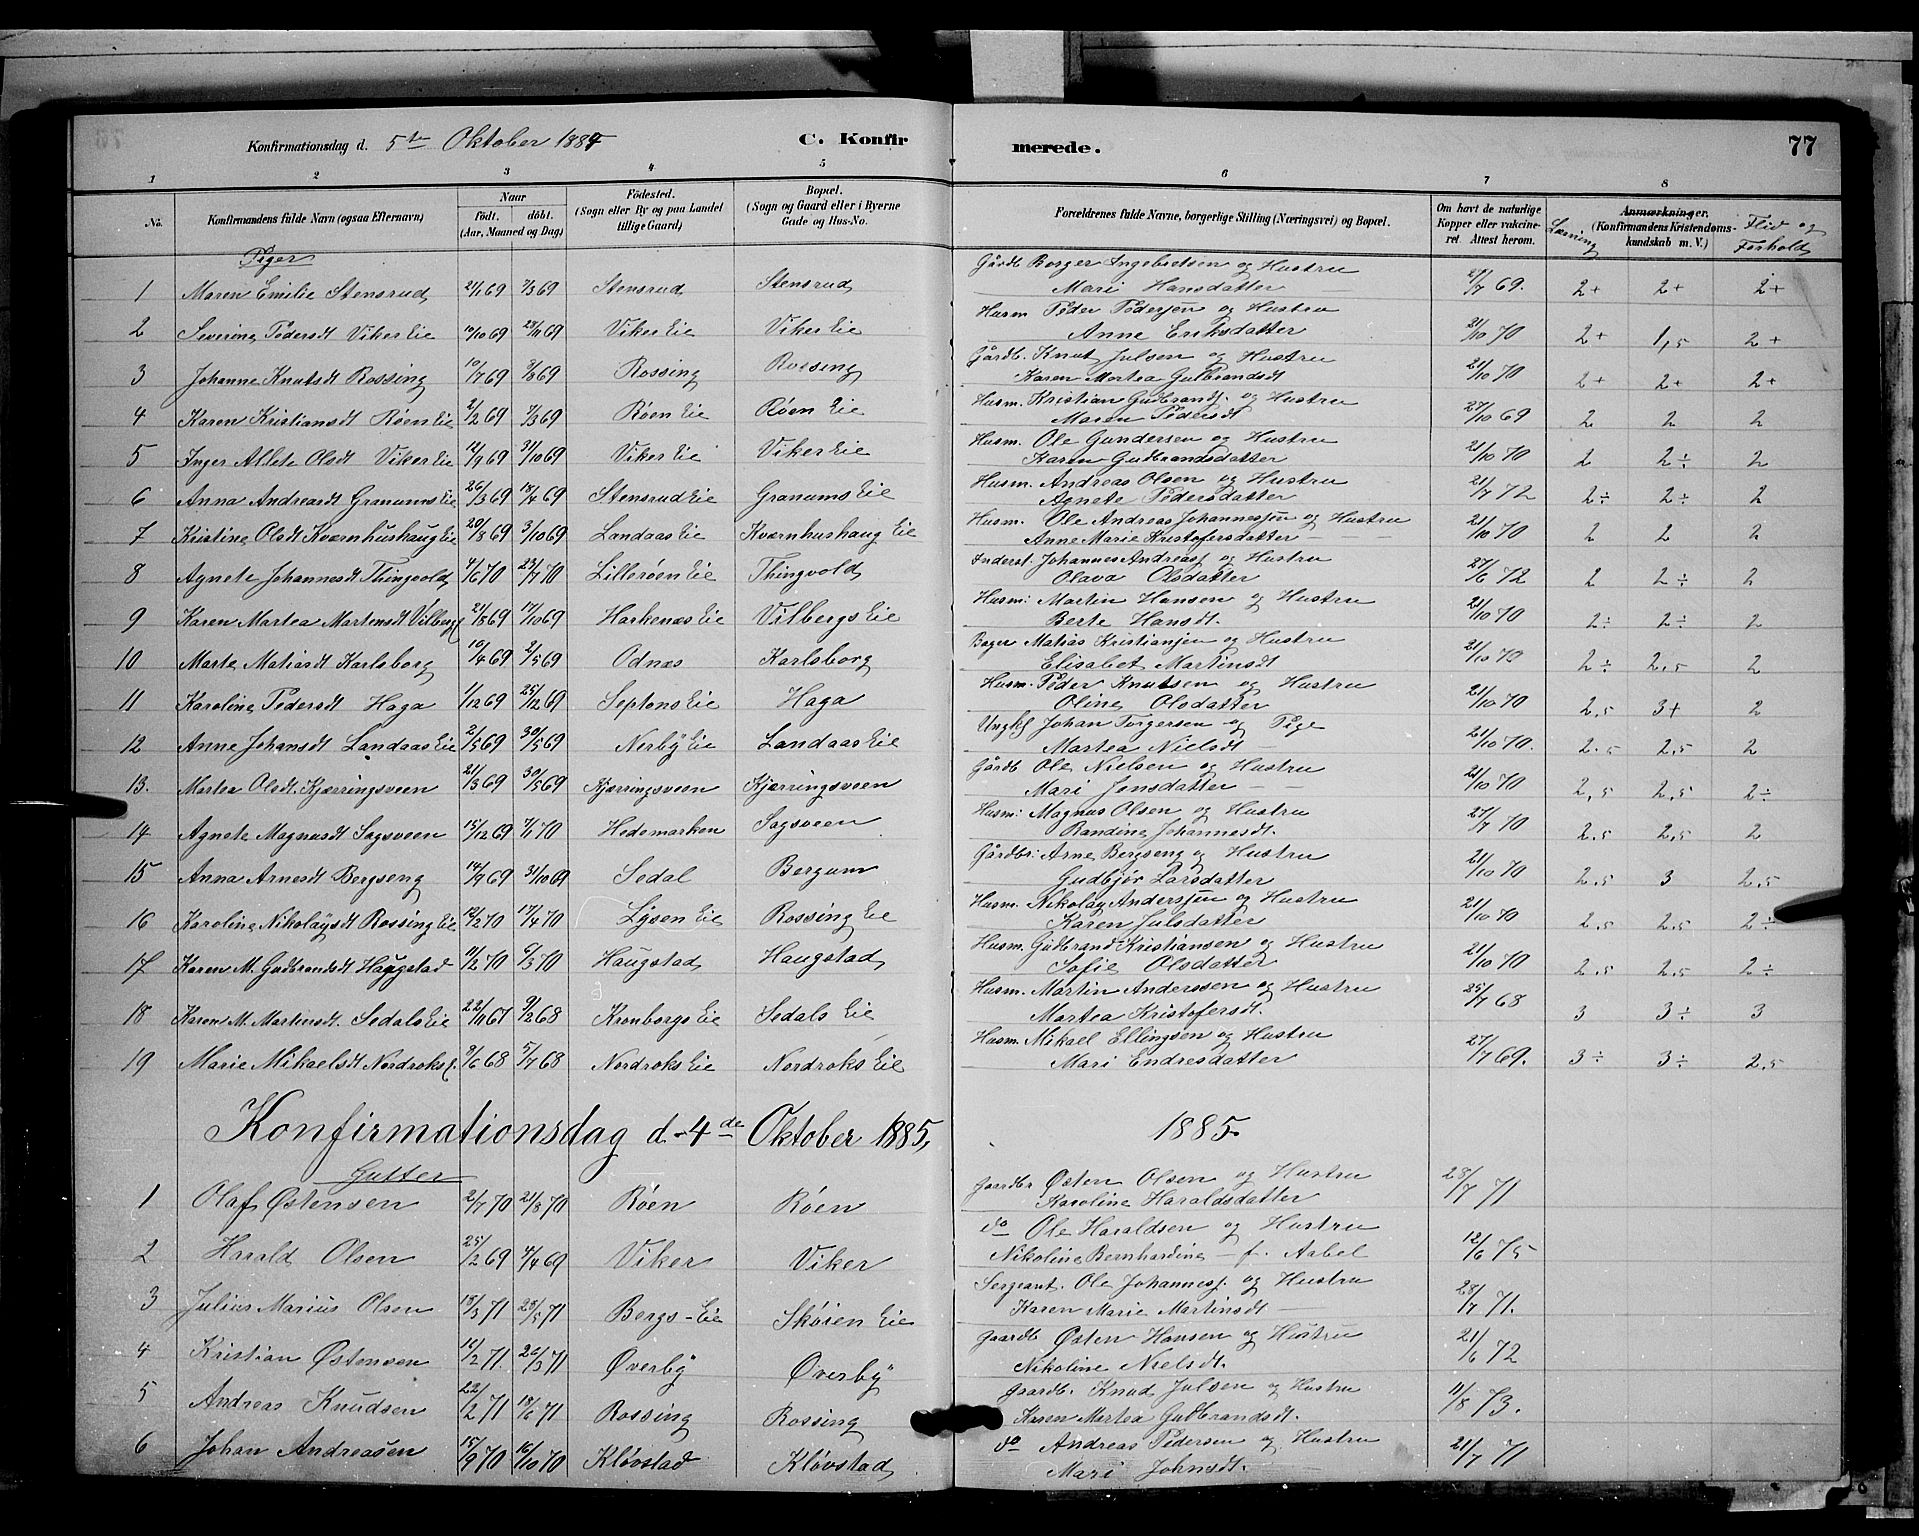 Konfirmationsdag d. 5te Oktober 1884 C. Konfirmerede. 77
1 2 3 4 5 6 7 8
No. Konfirmandens fulde Navn (ogsaa Efternavn) Naar födt. döbt. (Aar, Maaned og Dag) Födested. (Sogn eller By og paa Landet tillige Gaard) Bopæl. (Sogn og Gaard eller i Byerne Gade og Hus-No. Forældrenes fulde Navne, borgerlige Stilling (Næringsvei) og Bopæl. Om havt de naturlige Kopper eller vakcineret. Attest herom. Læsning Anmærkninger. (Konfirmandens Kristendomskundskab m. V.) Flid og Forhold
Piger
1 Maren Emilie Stensrud 21/1 69 7/3 69 Stensrud Stensrud Gårdb Borger Ingebretsen og Hustru 27/7 69. 2+ 2+ 2+
Mari Hansdatter
2 Severine Pedersdt Viker Eie 10/10 69 28/11 69 Viker Eie Viker Eie Husm Peder Pedersen og Hustru 21/10 70 2+ 1,5 2+
Anne Eriksdatter
3 Johanne Knutsdt Rossing 10/7 69 3/8 69 Rossing Rossing Gårdb. Knut Julsen og Hustru 21/10 70 2+ 2+ 2+
Karen Martea Gulbrandsdt
4 Karen Kristiansdt Røen Eie 2/2 69 7/3 69 Røen Eie Røen Eie Husm. Kristian Gudbrands. og Hustru 27/10 69 2 2 2
Maren Pedersdt
5 Inger Allete Olsdt Viker Eie 12/9 69 31/10 69 Viker Eie Viker Eie Husm. Ole Gundersen og Hustru 21/10 70 2 2÷ 2
Karen Gudbrandsdatter
6 Anna Andreasdt Granums Eie 26/3 69 18/4 69 Stensrud Eie Granums Eie Husm. Andreas Olsen og Hustru 21/7 72 2÷ 2÷ 2
Agnete Pedersdatter
7 Kristine Olsdt Kværnhushaug Eie 20/8 69 3/10 69 Landaas Eie Kværnhushaug Eie Husm. Ole Andreas Johannessen og Hustru 21/10 70 2 2 2
Anne Marie Kristofersdatter
8 Agnete Johannesdt Thingvold 4/6 70 23/7 70 Lillerøen Eie Thingvold Inderst. Johannes Andreass. og Hustru 27/6 72 2 2÷ 2
Olava Olsdatter
9 Karen Martea Martensdt Vilberg 21/8 69 17/10 69 Harkenæs Eie Vilbergs Eie Husm: Martin Hansen og Hustru 21/10 70 2÷ 2÷ 2
Berte Hansdt.
10 Marte Matiasdt Karlsborg 10/4 69 2/5 69 Odnæs Karlsborg Bager Matias Kristiansen og Hustru 21/10 70 2÷ 2,5 2
Elisabet Martinsdt
11 Karoline Pedersdt Haga 1/12 69 25/12 69 Septons Eie Haga Husm. Peder Knutsen og Hustru 21/10 70 2,5 3+ 2
Oline Olsdatter
12 Anne Johansdt Landaas Eie 2/5 69 30/5 69 Nerby Eie Landaas Eie Ungkl Johan Torgersen og Pige 21/10 70. 2.5 2,5 2
Martea Nielsdt
13. Martea Olsdt. Kjærringsveen 21/3 69 30/5 69 Kjærringsveen Kjærringsveen Gårdb Ole Nielsen og Hustru 21/10 70 2,5 2,5 2÷
Mari Jensdatter
14 Agnete Magnusdt Sagsveen 15/12 69 7/11 70 Hedemarken Sagsveen Husm: Magnus Olsen og Hustru 27/7 70 2.5 2,5 2
Randine Johannesdt.
15 Anna Arnesdt Bergseng 14/9 69 31/10 69 Sedal Bergum Gårdbr: Arne Bergseng og Hustru 21/10 70 2,5 3 2,5
Gudbjør Larsdatter
16 Karoline Nikolaysdt Rossing Eie 12/2 70 17/4 70 Lysen Eie Rossing Eie Husm. Nikolay Anderssen og Hustru 21/10 70 2,5 2,5 2÷
Karen Julsdatter
17 Karen M. Gudbrandsdt Haugstad 11/2 70 6/3 70 Haugstad Haugstad Husm. Gudbrand Kristiansen og Hustru 21/10 70 2,5 2,5 2÷
Sofie Olsdatter
18 Karen M. Martinsdt. Sedals Eie 22/11 67 9/2 68 Kronborgs Eie Sedals Eie Husm. Martin Anderssen og Hustru 25/7 68 3 3÷ 3
Martea Kristofersdt.
19 Marie Mikaelsdt Nordroks 9/6 68 5/7 68 Nordroks Eie Nordroks Eie Husm. Mikael Ellingsen og Hustru 27/7 69. 3÷ 3÷ 2,5
Mari Endresdatter
Konfirmationsdag d. 4de Oktober 1885, 1885.
Gutter
1 Olaf Østensen 2/7 70 21/8 70 Røen Røen Gaardbr Østen Olsen og Hustru 28/7 71
Karoline Haraldsdatter
2 Harald Olsen 25/2 69 4/4 69 Viker Viker do Ole Haraldsen og Hustru 12/6 75
Nikoline Bernhardine f. Aabel
3 Julius Marius Olsen 13/3 71 28/5 71 Bergs-Eie Skøien Eie Sergeant. Ole Johanness. og Hustru 28/7 71.
Karen Marie Martinsdt
4 Kristian Østensen 11/2 71 26/3 71 Øverby Øverby Gaardb Østen Hansen og Hustru 21/6 72
Nikoline Nielsdt.
5 Andreas Knudsen 22/2 71 18/6 71 Rossing Rossing Gaardb. Knud Julsen og Hustru 11/8 73.
Karen Martea Gulbrandsdt.
6 Johan Andreasen 15/9 70 16/10 70 Kløvstad Kløvstad do Andreas Pedersen og Hustru 21/7 71
Mari Johnsdt.